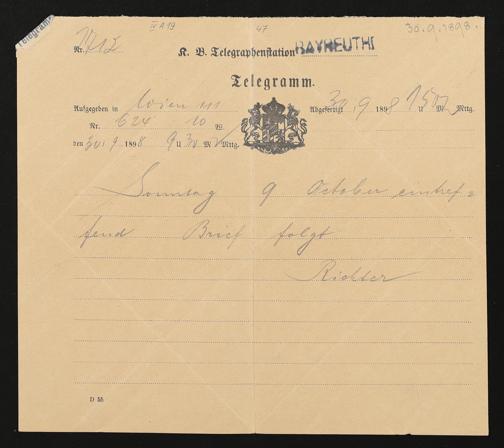 Telegramm
IV A 19
47
30.9.1898.
Nr.
K. B. Telegraphenstation BAYREUTH
Telegramm.
Aufgegeben in Wien
Abgefertigt 30/9 1898
Nr. 624 10 W.
den 30/9 1898 9 U 30 M Mttg.
Sonntag 9 October eintref=
fend Brief folgt
Richter
D 55